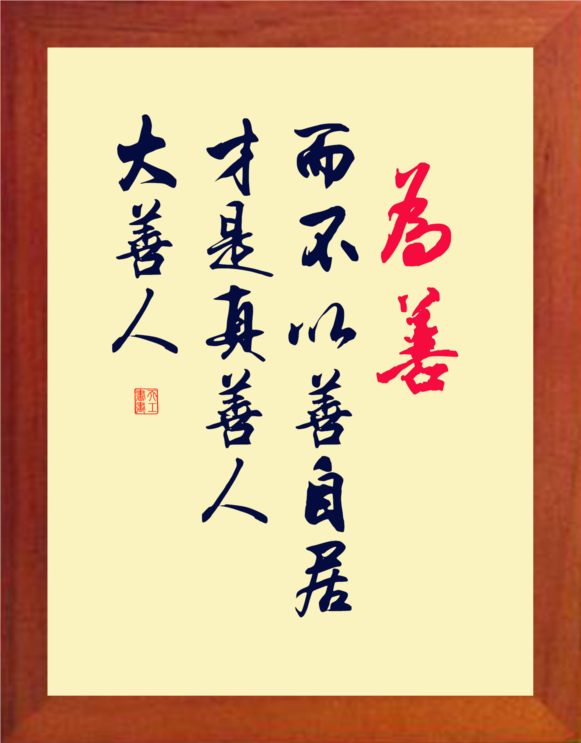 為善
而不以善自居
才是真善人
大善人